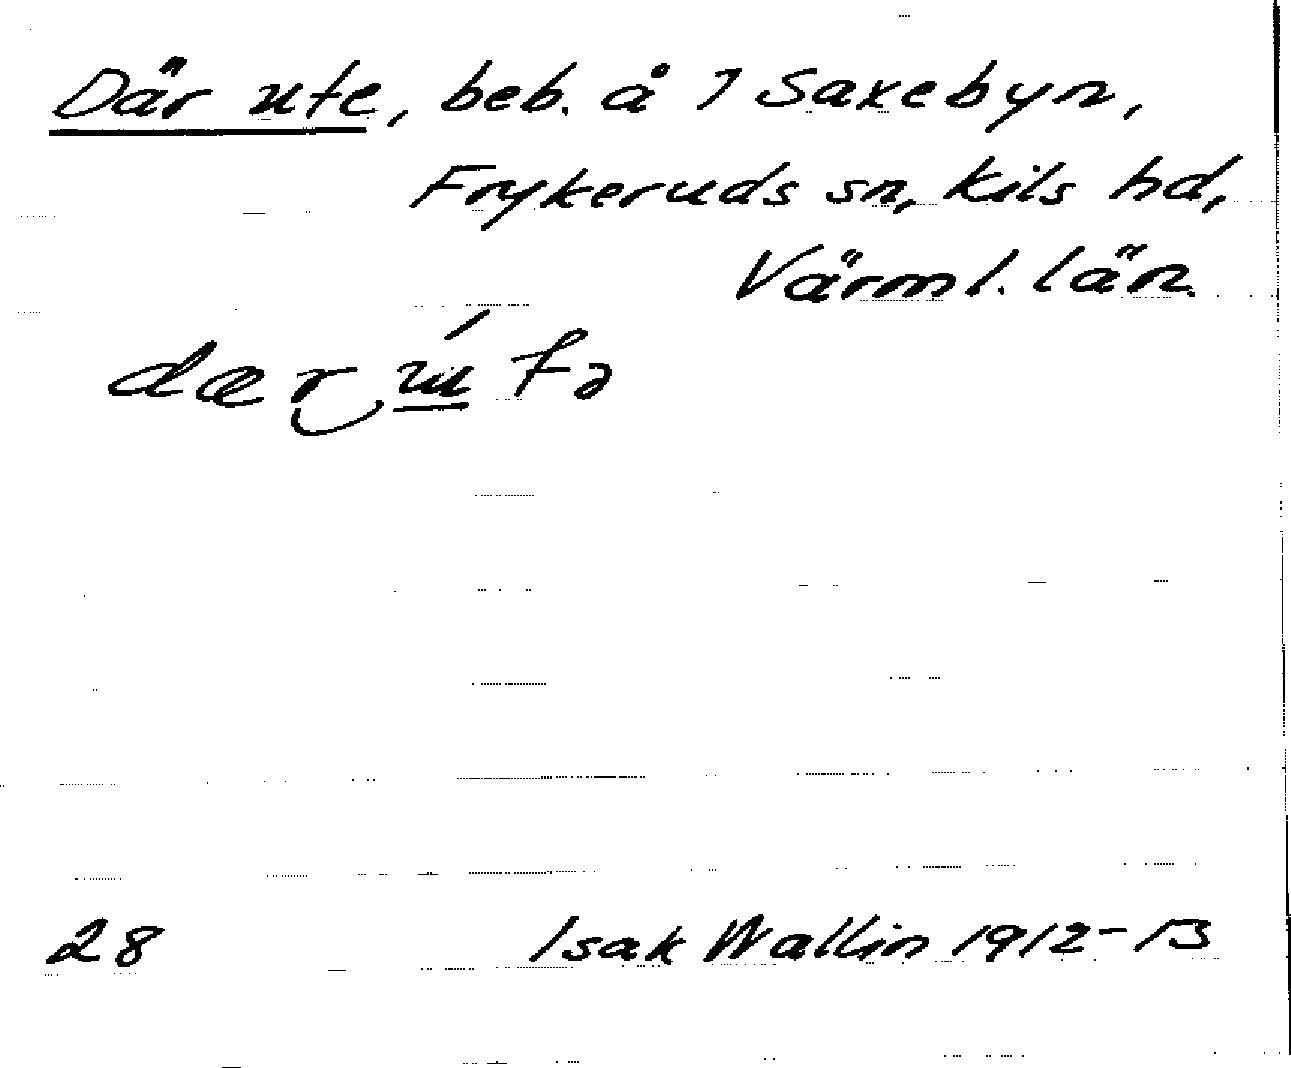 Där ute, beb. å 7 Saxebyn,
Frykeruds sn, Kils hd,
Värml. län.
dær
28 Isak Wallin 1912-13